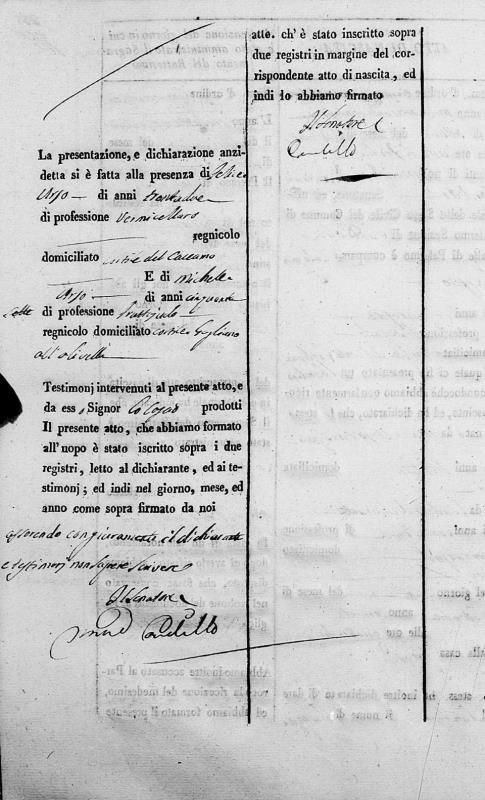 La presentazione, e dichiarazione anzi-
detta si è fatta alla presenza di Felice
Urso di anni trentadue
di professione Vermicellaro
regnicolo
domiciliato Cortile del Caccamo
E di Michele
Urso di anni cinquanta
sette di professione
regnicolo domiciliato Cortile
all'olivella
Testimonj intervenuti al presente atto, e
da esso Signor Lo Cascio prodotti
Il presente atto, che abbiamo formato
all'uopo è stato iscritto sopra i due
registri, letto al dichiarante, ed ai te-
stimonj; ed indi nel giorno, mese, ed
anno come sopra firmato da noi
asserendo con giuramento il dichiarante
e testimonj non sapere scrivere
Il Senatore
atto. ch' è stato inscritto sopra
due registri in margine del cor-
rispondente atto di nascita, ed
indi lo abbiamo firmato
Il Senatore